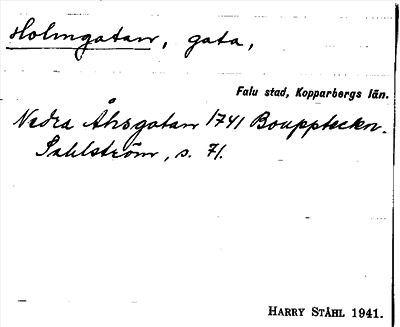 Holmgatan, gata,
Falu stad, Kopparbergs län.
Nedra Åhsgatan 1741 Bouppteckn.
Sahlström, s. 71.
HARRY STÅHL 1941.